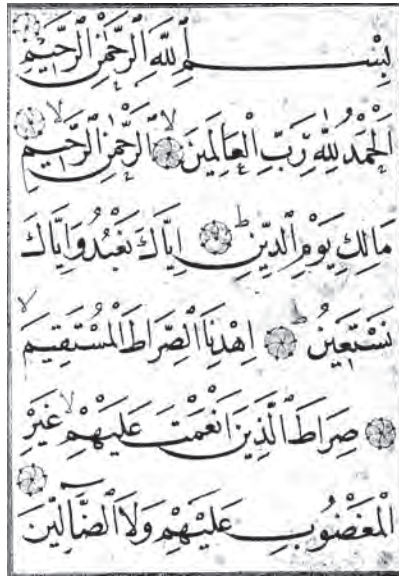 بِسْمِ اللهِ الرَّحْمٰنِ الرَّحِيْمِ
اَلْحَمْدُ لِلّٰهِ رَبِّ الْعَالَمِيْنَ ۝ لا اَلرَّحْمٰنِ الرَّحِيْمِ ۝ لا
مَالِكِ يَوْمِ الدِّيْنِ ۝ ط اِيَّاكَ نَعْبُدُ وَاِيَّاكَ
نَسْتَعِيْنُ ۝ ط اِهْدِنَا الصِّرَاطَ الْمُسْتَقِيْمَ لا
۝ صِرَاطَ الَّذِيْنَ اَنْعَمْتَ عَلَيْهِمْ لا غَيْرِ
الْمَغْضُوْبِ عَلَيْهِمْ وَلَا الضَّالِّيْنَ ۝